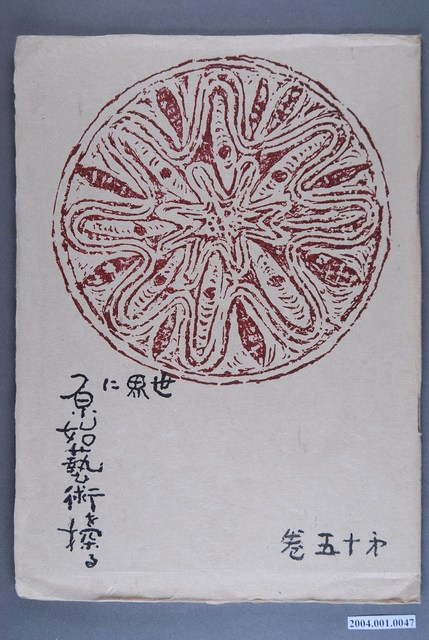 世界に
原始藝術を探る
㐧十五巻
2004.001.0047